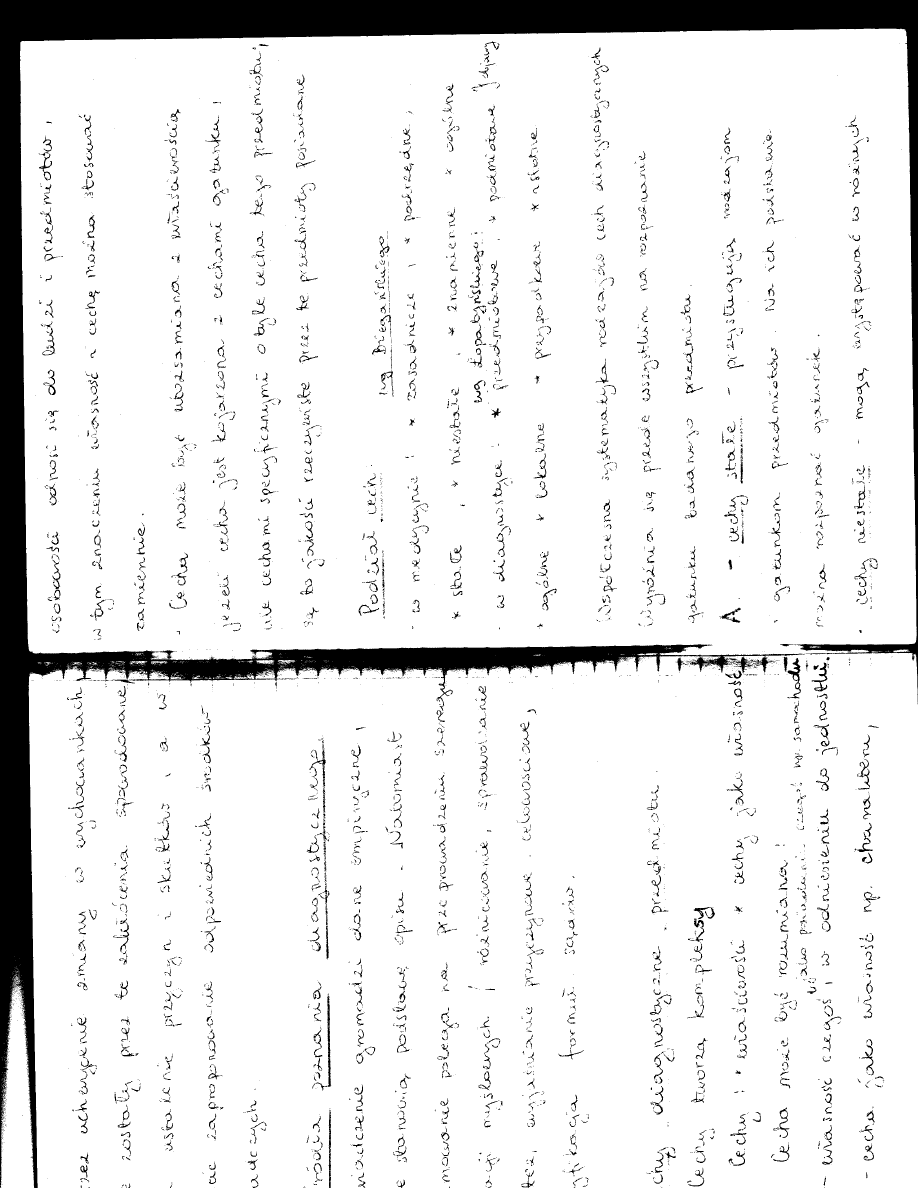 zez uchwycenie zmiany w wychowankach,
e zostały przez te zakłócenia spowodowane,
ustalenie przyczyn i skutków, a w
ac zaproponowanie odpowiednich środków
awczych.
ródła poznania diagnostycznego.
wiadczenie gromadzi dane empiryczne,
e stanowią podstawę opisu. Natomiast
mowanie polega na przeprowadzeniu szeregu
acji myślowych / różnicowanie, sprawdzanie
tez, wyjaśnianie przyczynowe, celowościowe,
yfikacja formuł. sądów.
chy diagnostyczne przedmiotu.
Cechy tworzą kompleksy
Cechy: * właściwości * cechy jako własność
Cecha może być rozumiana:
jako posiadanie czegoś np. samochodu
- własność czegoś, w odniesieniu do jednostki.
- cecha jako własność np. charakteru,
osobowości odnosi się do ludzi i przedmiotów,
w tym znaczeniu własność a cechę można stosować
zamiennie.
- Cecha może być utożsamiana z właściwością
jeżeli cecha jest kojarzona z cechami gatunku,
ale cechami specyficznymi o tyle cecha tego przedmiotu,
są to jakości rzeczywiste przez te przedmioty posiadane
Podział cech: wg Biegańskiego
- w medycynie: * zasadnicze, * podrzędne,
* stałe, * niestałe, * znamienne * ogólne
wg Łopatyńskiego:
- w diagnostyce: * przedmiotowe, * podmiotowe } objawy
* ogólne * lokalne * przypadkowe * istotne
Współczesna systematyka rodzajów cech diagnostycznych
Wyróżnia się przede wszystkim na rozpoznanie
gatunku badanego przedmiotu.
A. - cechy stałe - przysługują rodzajom
, gatunkom przedmiotów. Na ich podstawie
można rozpoznać gatunek.
- cechy niestałe - mogą występować w różnych